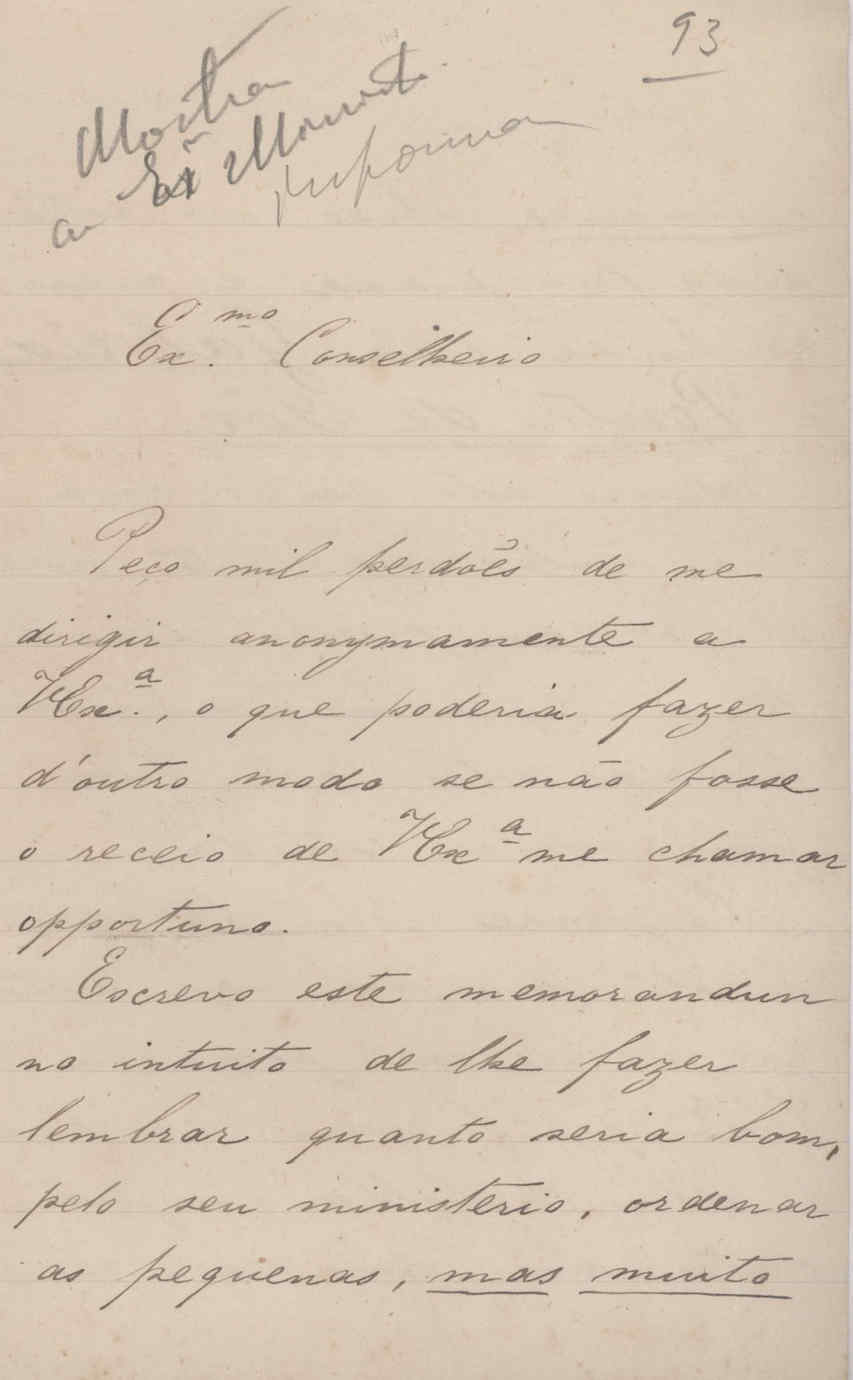 93
Mostra
a
Ex.mo Conselheiro
Peço mil perdões de me
dirigir anonymamente a
VEx.a, o que poderia fazer
d'outro modo se não fosse
o receio de VExa me chamar
opportuno.
Escrevo este memorandun
no intuito de lhe fazer
lembrar quanto seria bom,
pelo seu ministerio, ordenar
as pequenas, mas muito